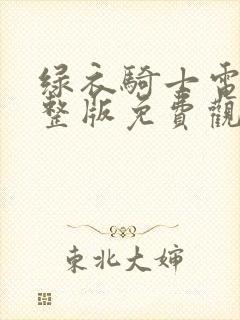 绿衣騎士電
整版免費觀
東北大嬸